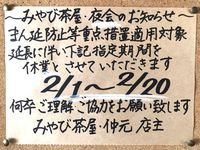 ～みやび茶屋・夜会のお知らせ～
まん延防止等重点措置適用対象
延長に伴い下記指定期間を
休業とさせていただきます
2/1～2/20
何卒ご理解ご協力をお願い致します
みやび茶屋・仲元 店主